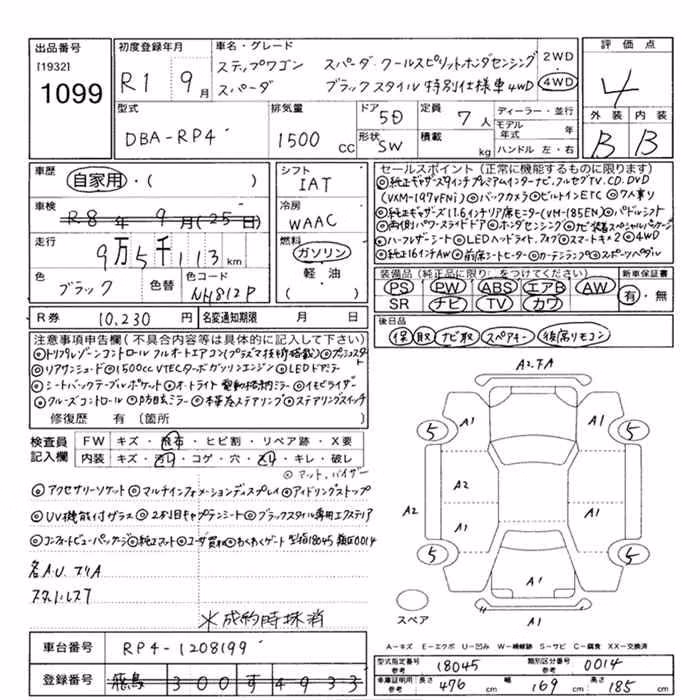 出品番号
[1932]
1099
初度登録年月
R1 9月
車名・グレード
ステップワゴン スパーダ・クールスピリットホンダセンシング
スパーダ ブラックスタイル 特別仕様車4WD
2WD
4WD
評価点
4
外装 内装
B B
型式
DBA-RP4
排気量
1500 CC
ドア 5D
形状 SW
定員 7人
積載 kg
ディーラー・並行
モデル年式 年
ハンドル 左・右
車歴
自家用・( )
車検
R8年9月(25日)
走行
9万5千113km
色
ブラック
色替
色コード
NH812P
シフト
IAT
冷房
WAAC
燃料
ガソリン
軽油
( )
R券 10,230円
名変通知期限 月 日
セールスポイント(正常に機能するものに限ります)
◎純正ギャザズ9インチプレミアムインターナビ.フルセグTV.CD.DVD
(VXM-197VFNi)◎バックカメラ◎ビルトインETC◎7人乗り
◎純正ギャザーズ11.6インチリア席モニター(VM-185EN)◎パドルシフト
◎両側パワースライドドア◎ホンダセンシング◎ナビ装着スペシャルパッケージ
◎ハーフレザーシート◎LEDヘッドライト.フォグ◎スマートキー2◎4WD
◎純正16インチAW◎前席シートヒーター◎カーテンエアバッグ◎スポーツペダル
装備品(純正品に限り○をつけてください)
PS PW ABS エアB AW
SR ナビ TV カワ
新車保証書
有・無
後日品
保 取 ナビ取 スペアキー 後席リモコン
注意事項申告欄(不具合内容等は具体的に記入して下さい)
◎トリプルゾーンコントロール フルオートエアコン(プラズマ技術搭載)◎プッシュスタート
◎リアサンシェード◎1500cc VTECターボガソリンエンジン◎LEDドアミラー
◎シートバックテーブルポケット◎オートライト 電動格納ミラー◎イモビライザー
◎クルーズコントロール◎防眩ミラー◎本革巻ステアリング◎ステアリングスイッチ
修復歴 有(箇所 )
検査員
記入欄
FW キズ・飛石・ヒビ割・リペア跡・X要
内装 キズ・汚れ・コゲ・穴・スレ・キレ・破レ
◎マット.バイザー
◎アクセサリーソケット◎マルチインフォメーションディスプレイ◎アイドリングストップ
◎UV機能付ガラス◎2列目キャプテンシート◎ブラックスタイル専用エクステリア
◎コンフォートビューパッケージ◎純正マット◎ユーザ買取◎わくわくゲート 型指18045 類区0014
各AU.スリA
※成約時抹消
車台番号 RP4-1208199
登録番号 300す4933
A2.FA
5
A1
A1
5
A2
A2
A1
A1
A1
5
5
A1
スペア
A1
A-キズ E-エクボ U-凹み W-補修跡 S-サビ C-腐食 XX-交換済
型式指定番号参考 18045
類別区分番号参考 0014
車庫証明用参考
長さ 476 cm
幅 169 cm
高さ 185 cm